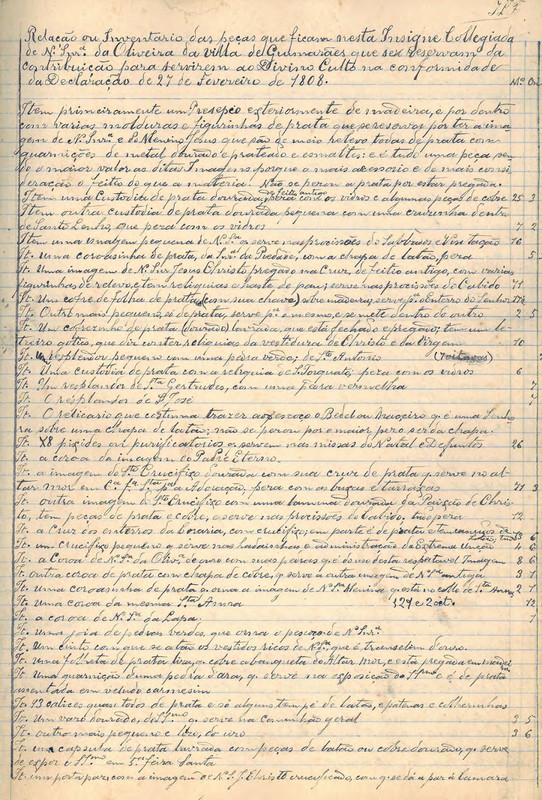 Relação ou Inventario das peças que ficam nesta Insigne Collegiada
de N. Snrª. da Oliveira da villa de Guimarães que se reservam da
contribuição para servirem ao Divino Culto na conformidade
da Declaração de 27 de Fevereiro de 1808.
Item primeiramente um Presepio exteriormente de madeira, e por dentro
com varias molduras e figurinhas de prata que se reserva por ter a ima-
gem de Nª. Snrª e do Menino Jesus que são de maio relevo todas de prata com
guarnições de metal dourado e prateado e esmaltes: e é tudo uma peça
e o maior valor as ditas Imagens porque o mais acessorio e de mais consi-
deração o feitio do que a materia. Não se pezou a prata por estar pregada.
Item uma Custodia de prata dourada, de feitio antigo peza com os vidros e algumas peças de cobre 25 3
Item outra custodia de prata dourada pequena com uma cruzinha dentro
de Santo Lenho, que peza com os vidros 7 2
Item uma imagem pequena de Nª. Srª q. serve nas procissões de Sabbado e Visitação 16
It. uma coroasinha de prata, da Snrª. da Piedade, com a chapa de latão, peza 5
It. Uma imagem de N. Snr Jesus Christo pregado na Cruz, de feitio antigo, com varias
figurinhas de relevo, e tem reliquias e haste, de pau, serve nas procissões do Cabido 71
It. Um cofre de folha de prata, (com sua chave) sobre madeira, serve pª. o enterro do Senhor
It. Outro mais pequeno, é de prata, serve pª. o mesmo, e se mete dentro do outro 2 5
It. Um cofrezinho de prata (dourado) lavrada, que está fechado e pregado, tem um le-
treiro gótico, que diz conter reliquias da vestidura de Christo e da Virgem 10
It. Um resplendor pequeno com uma pedra verde, de Stº Antonio (7 oitavas)
It. Uma custodia de prata com a reliquia de S. Torquato, peza com os vidros 6
It. Um resplandor de Stª Gertrudes, com uma pedra vermelha 7
It. O resplandor de S. José 7
It. O relicario que costuma trazer ao pescoço o Bedel ou Maceiro q. é uma Senho-
ra sobre uma chapa de latão; não se pezou por o maior pezo ser da chapa.
It. XII pixides ou purificatorios q. servem nas missas do Natal e Defuntos 26
It. a coroa da imagem do Padre Eterno.
It. a imagem do Stº Crucifixo dourada com sua cruz de prata q. serve no al-
tar mor, peza com os buxas e tarraxas 71 3
It. outra imagem do Stº Crucifixo com uma lamina dourada da Paixão de Chris-
to, tem peças de prata e cobre, e serve nas procissões do Cabido, tudo peza 12
It. a Cruz dos enterros da Coraria, com crucifixo, em parte é de prata 13 6
It. um crucifixo pequeno q. serve nas ladainhas e administração da Extrema Unção 4 6
It. a Coroa de N. Srª. da Olivª. de ouro com suas pedras que do uso desta respeitavel Imagem 8 6
It. outra coroa de prata com chapa de cobre, q. serve á outra imagem de Nª Srª antiga 3 1
It. uma coroasinha de prata q. orna a imagem de Nª Srª Menina q. está no collo de Stª Anna 2 1
It. uma coroa da mesma Stª Anna 129 e 2 oit. 12
It. a coroa de Nª. Srª da Lapa 7
It. uma joia de pedras verdes, que orna o pescoço de Nª Snrª
It. Um cinto com que se atão os vestidos ricos de N. Srª. que é transelim d'ouro.
It. uma folheta de prata lisa, q. cobre a banqueta do Altar Mor, e está pregada em madeira
It. Uma guarnição d'uma pedra d'ara, q. serve na exposição do SSmo e é de prata
assentada em velludo carmesim
It. 13 calices quasi todos de prata e só alguns tem pé de latão, e patenas e colherinhas
It. Um vaso dourado, do SSmo q. serve na comunhão geral 3 5
It. outro mais pequeno e liso, do uso 3 6
It. uma capsula de prata lavrada com peças de latão ou cobre dourado, q. serve
de expor o SSmo em 5ª feira Santa
It. um porta paz, com a imagem de N. S. J. Christo crucificado, com que se dá a paz á Camara